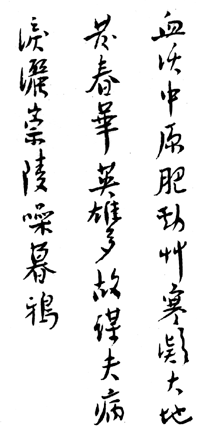 血沃中原肥勁艸寒凝大地
發春華英雄多故謀夫病
淚灑崇陵噪暮鴉